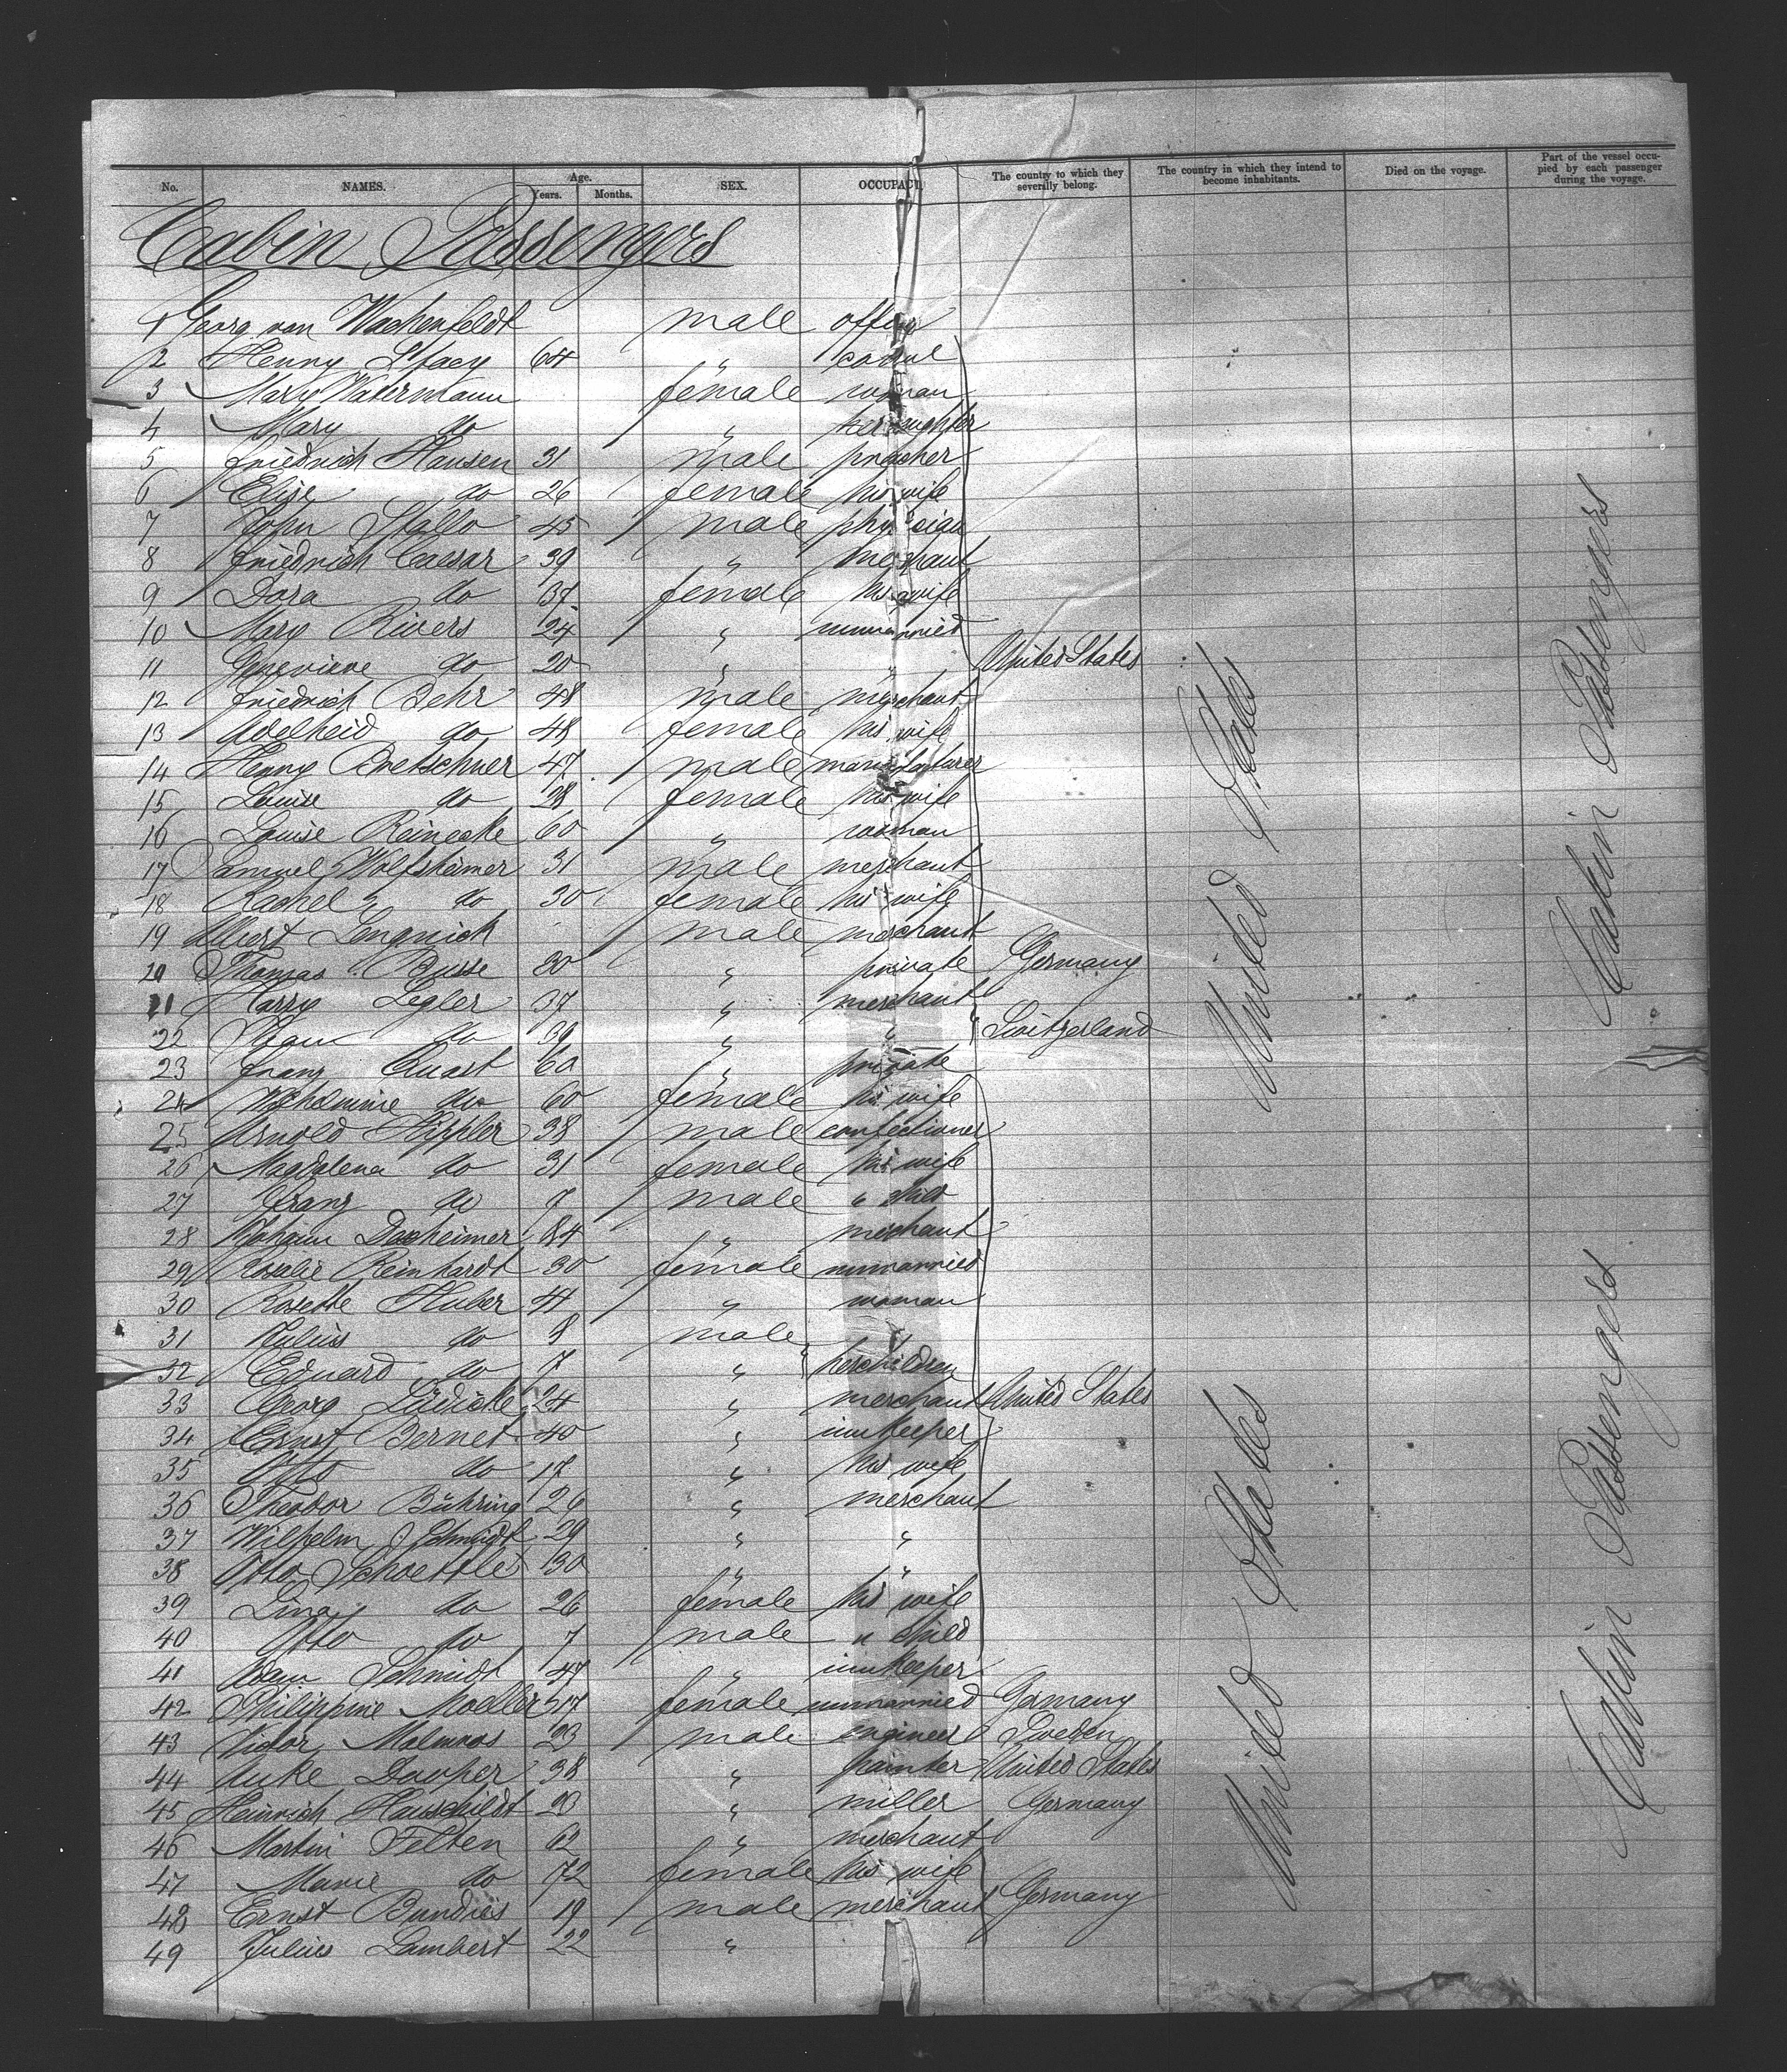 No. NAMES. Age. Years. Months. SEX. OCCUPAC The country to which they severally belong. The country in which they intend to become inhabitants. Died on the voyage. Part of the vessel occupied by each passenger during the voyage.
Cabin Passengers
1 Georg von Wachenfeldt male
2 Henry Stacy 64 " consul
3 Mary Watermann female woman
4 Mary do " her daughter
5 Friedrich Hansen 31 male preacher
6 Elise do 26 female his wife
7 John Stallo 45 male physician
8 Friedrich Caesar 39 " merchant
9 Dora do 37 female his wife
10 Mary Rivers 24 " unmarried
11 Genevieve do 20 " " United States
12 Friedrich Behr 48 male merchant
13 Adelheid do 48 female his wife
14 Henry Bretschner 47 male manufacturer
15 Louise do 28 female his wife
16 Louise Reinecke 60 " woman
17 Samuel Wolfsheimer 31 male merchant
18 Rachel do 30 female his wife
19 Albert Lengnick male merchant
20 Thomas Busse 30 " private Germany
21 Harry Legler 37 " merchant
22 do 39 " " Switzerland
23 Franz Quast 60 " private
24 Wilhelmine do 60 female his wife
25 Arnold Hippler 38 male confectioner
26 Magdalena do 31 female his wife
27 Franz do 7 male " child
28 Johann Dexheimer 84 " merchant
29 Rosalie Reinhardt 30 female unmarried
30 Rosette Huber 44 " woman
31 Julius do 8 male
32 Eduard do 7 " her children
33 Georg Lüdicke 24 " merchant United States
34 Ernst Bernet 40 " innkeeper
35 Otto do 17 " his wife
36 Theodor Bühring 26 " merchant
37 Wilhelm J. Schmidt 29 " "
38 Otto Schoettle 30 " "
39 Lina do 26 female his wife
40 Otto do 7 male " child
41 Adam Schmidt 47 " innkeeper
42 Philippine Moeller 17 female unmarried Germany
43 Victor Malmros 23 male engineer Sweden
44 Auke Dooper 38 " painter United States
45 Heinrich Hauschildt 20 " miller Germany
46 Martin Felten 62 " merchant
47 Marie do 72 female his wife
48 Ernst Bundies 19 male merchant Germany
49 Julius Lambert 22 "
United States
United States
Cabin Passengers
Cabin Passengers